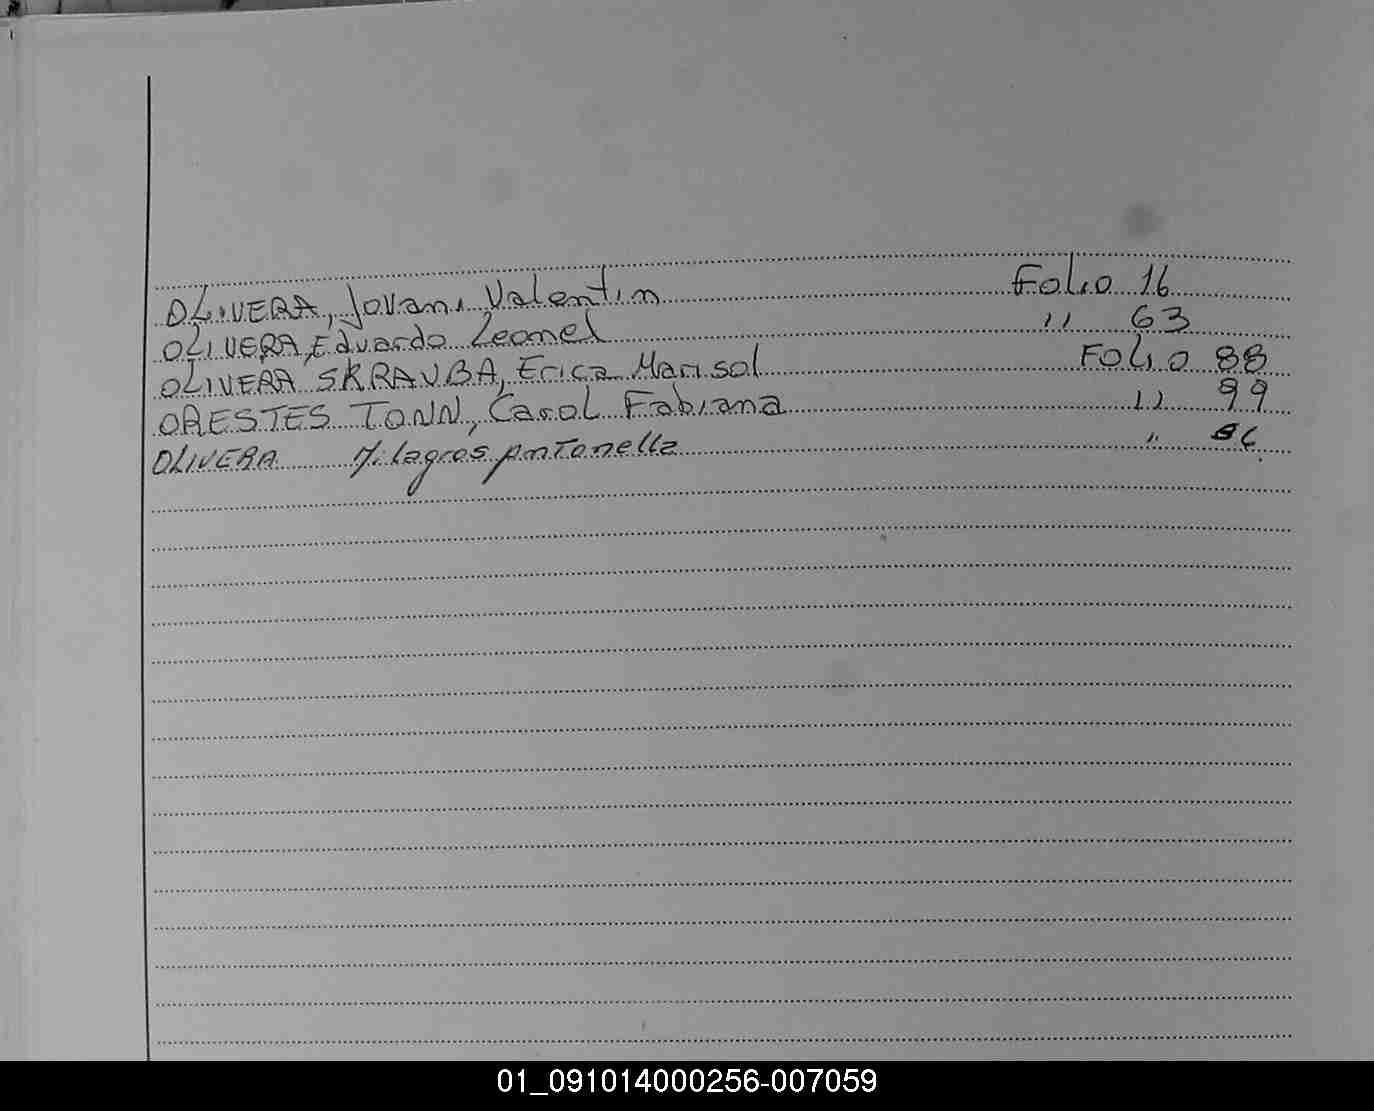 OLIVERA, Jovani Valentin Folio 16
OLIVERA, Eduardo Leonel " 63
OLIVERA SKRAUBA, Erica Marisol Folio 88
ORESTES TONN, Carol Fabiana " 99
OLIVERA Milagros Antonella "
01_091014000256-007059